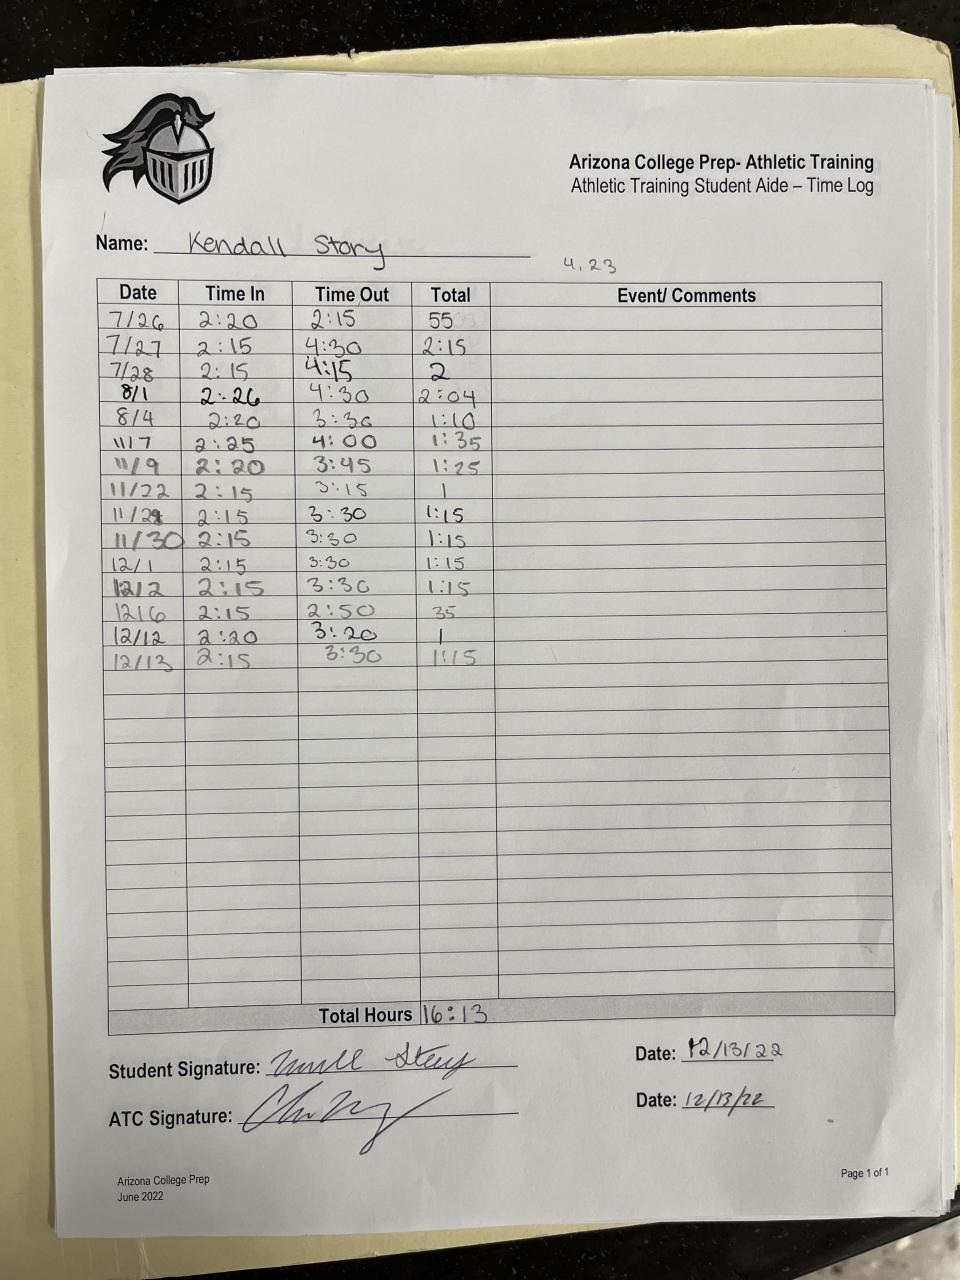 Arizona College Prep- Athletic Training
Athletic Training Student Aide – Time Log
Name: Kendall Story
4.23
Date Time In Time Out Total Event/ Comments
7/26 2:20 2:15 55
7/27 2:15 4:30 2:15
7/28 2:15 4:15 2
8/1 2:26 4:30 2:04
8/4 2:20 3:30 1:10
11/7 2:25 4:00 1:35
11/9 2:20 3:45 1:25
11/22 2:15 3:15 1
11/28 2:15 3:30 1:15
11/30 2:15 3:30 1:15
12/1 2:15 3:30 1:15
12/2 2:15 3:30 1:15
12/6 2:15 2:50 35
12/12 2:20 3:20 1
12/13 2:15 3:30 1:15
Total Hours 16:13
Student Signature: Story Date: 12/13/22
ATC Signature: Date: 12/13/22
Arizona College Prep
June 2022
Page 1 of 1